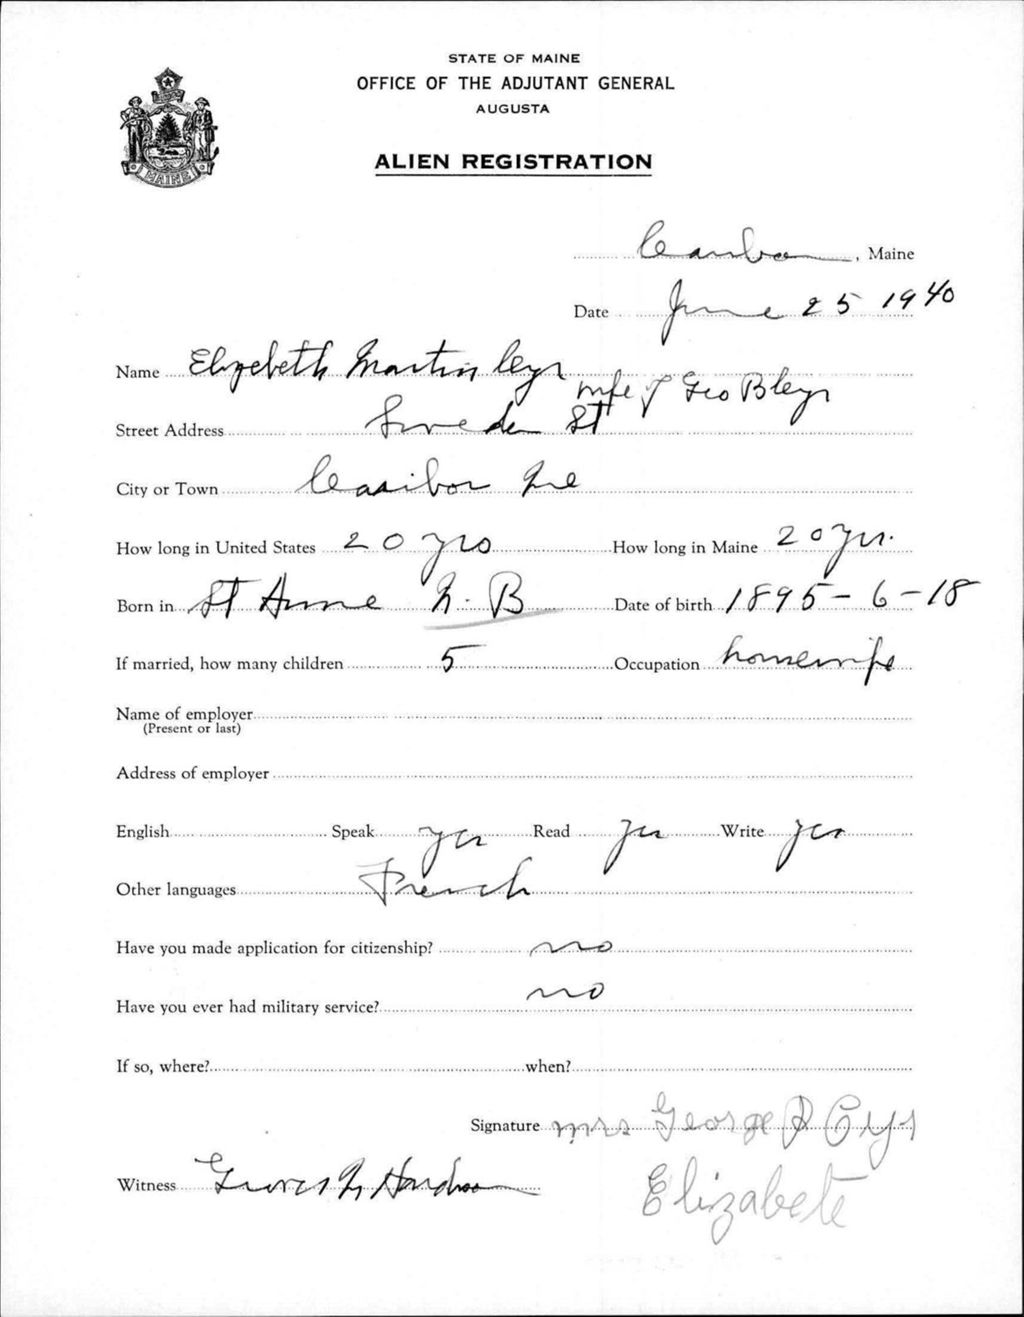 STATE OF MAINE
OFFICE OF THE ADJUTANT GENERAL
AUGUSTA
ALIEN REGISTRATION
MAINE
Caribou, Maine
Date June 25 1940
Name Elizebeth Martin Cyr
wife of Geo B Cyr
Street Address Sweden St
City or Town Caribou Me
How long in United States 20 yrs How long in Maine 20 yrs.
Born in St Anne N. B Date of birth 1895-6-18
If married, how many children 5 Occupation housewife
Name of employer
(Present or last)
Address of employer
English Speak yes Read yes Write yes
Other languages French
Have you made application for citizenship? no
Have you ever had military service? no
If so, where? when?
Signature mrs George Cyr
Witness
Elizabete